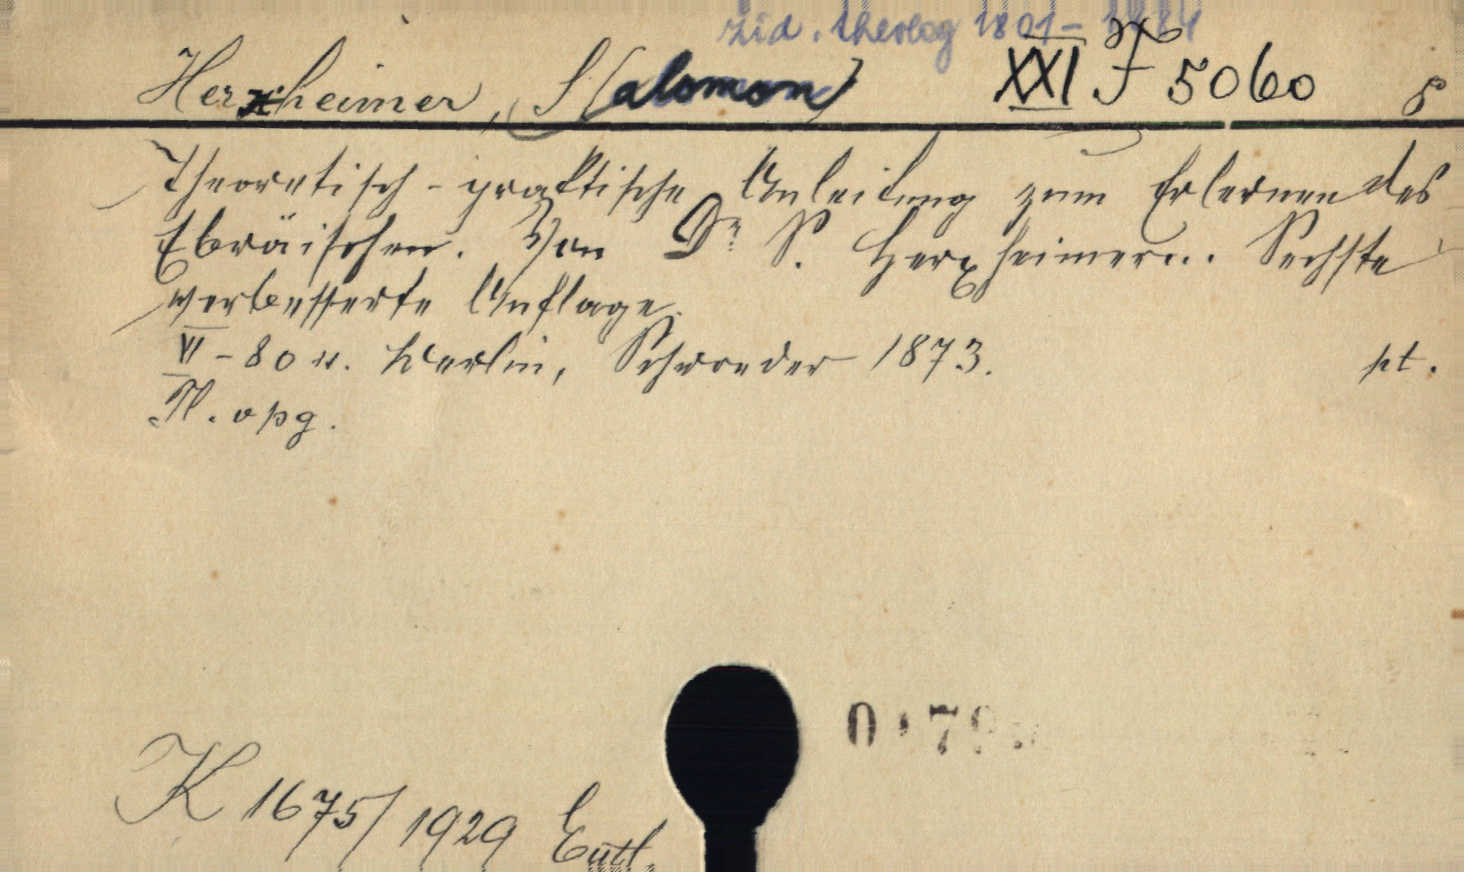 žid. theolog 1801-1884
Herxheimer, S[alomon] XXI F 5060
Theoretisch-praktische Anleitung zum Erlernen des
Ebräischen. Von Dr S. Herxheimer... Sechste
verbesserte Auflage.
VI-80 s. Berlin, Schroeder 1873. pt.
Pl. opg.
K 1675/1929